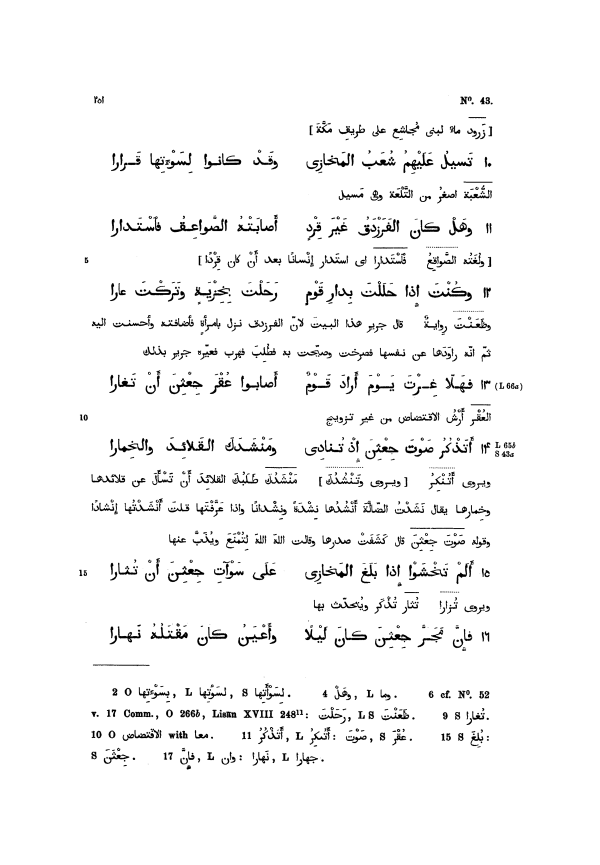 ٢٥١ Nº. 43.
[ زَرود ماء لبنى مُجاشِع على طريق مَكّةَ ]
١٠ تَسيلُ عَلَيْهِمُ شُعَبُ المَخازِى وقَدْ كانوا لِسَوْءَتِها قَرارا
الشُّعْبَة اصغرُ من التَّلْعَة وفى مَسيل
١١ وهَلْ كانَ الفَرَزْدَقُ غَيْرَ قِرْدٍ أصابَتْهُ الصَّواعِقُ فَاَسْتَدارا
5 [ ولُغَتُه الصَّواقِعُ فَاَسْتَدارا اى استدار إنْسانًا بعد أنْ كان قِرْدًا ]
١٢ وكُنْتَ إذا حَلَلْتَ بِدارِ قَوْمٍ رَحَلْتَ بِخِزْيَةٍ وتَرَكْتَ عارا
وظَعَنْتَ روايةٌ قال جرير هذا البيت لانّ الفرزدق نزل بامرأةٍ فأضافته وأحسنت اليه
ثمّ انّه راوَدَها عن نفسها فصرخت وصيّحت به فطُلِبَ فهرب فعيّره جرير بذلك
١٣ فَهَلّا غِرْتَ يَوْمَ أرادَ قَوْمٌ أصابوا عُقْرَ جِعْثِنَ أنْ تَغارا (L 66a)
10 العُقْر أَرْشُ الاقتضاض من غير تزويج
١٤ أتَذْكُرُ صَوْتَ جِعْثِنَ إذْ تُنادِى ومَنْشَدَكَ القَلائِدَ والخِمارا L 65b S 43a
ويروى أتُنْكِرُ [ ويروى وتَنْشُدُكَ ] مَنْشَدَكَ طَلَبُكَ القلائدَ أنْ تَسْأَلَ عن قلائدها
وخمارها يقال نَشَدْتُ الضّالَّةَ أنْشُدُها نِشْدَةً ونِشْدانًا واذا عَرَّفْتَها قلتَ أنْشَدْتُها إنْشادًا
وقوله صَوْتَ جِعْثِنَ قال كَشَفَتْ صدرها وقالت اللهَ اللهَ لتُمْنَعَ ويُذَبَّ عنها
15 ١٥ ألَمْ تَخْشَوْا إذا بَلَغَ المَخازِى عَلَى سَوْآتِ جِعْثِنَ أنْ تُثارا
ويروى تُزارا تُثار تُذْكَر ويُتحدّث بها
١٦ فإنَّ مَجَرَّ جِعْثِنَ كانَ لَيْلًا وأعْيَنُ كانَ مَقْتَلُهُ نَهارا
2 O بِسَوْءَتِها, L لسَوْتِها, S لسَوْأَتِها. 4 وهَلْ, L وما. 6 cf. Nº. 52
v. 17 Comm., O 266b, Lisān XVIII 248¹¹: رَحَلْتَ, L S ظَعَنْتَ. 9 S تُغارا.
10 O الاقتصاص with معا. 11 أتَذْكُرُ, L أتُنكِرُ: صَوْتَ, S عُقْرَ. 15 S بُلِغَ:
S جِعْثَنَ. 17 فإنَّ, L وان: نَهارا, L جهارا.